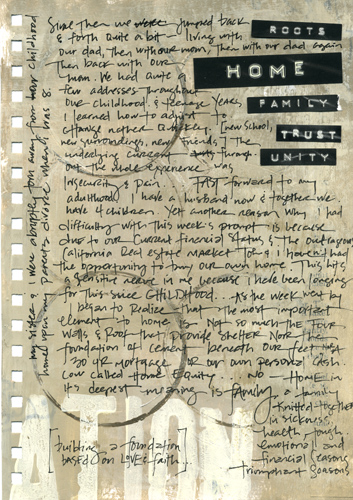 my sister & I were abruptly torn away from our childhood
home upon my parents divorce when I was 8.
Since then we were jumped back
& forth quite a bit living with
our dad, then with our mom, then with our dad again
then back with our
mom. We had quite a
few addresses throughout
our childhood & teenage years,
I learned how to adjust to
change rather quickly. [new school,
new surroundings, new friends,] The
underlying current through-
out the whole experience was
insecurity & pain. FAST forward to my
adulthood, I have a husband now & together we
have 4 children. Yet another reason why I had
difficulty with this week's prompt is because
due to our current financial status & the outrageous
California Real estate Market Joe & I haven't had
the opportunity to buy our own home. This hits
a sensitive nerve in me because I have been longing
for this since CHILDHOOD. As the week went by
I began to realize that the most important
element to home is Not so much the four
walls & Roof that provide shelter Nor the
foundation of cement beneath our feet Nor
30 YR MORTGAGE OR our own personal cash
cow called Home Equity. NO - HOME in
it's deepest meaning is family, a family
knitted together
in sickness,
health, tough
emotional and
financial seasons
Triumphant seasons
ROOTS
HOME
FAMILY
TRUST
UNITY
ATION
[building a foundation]
BASED on LOVE & faith...